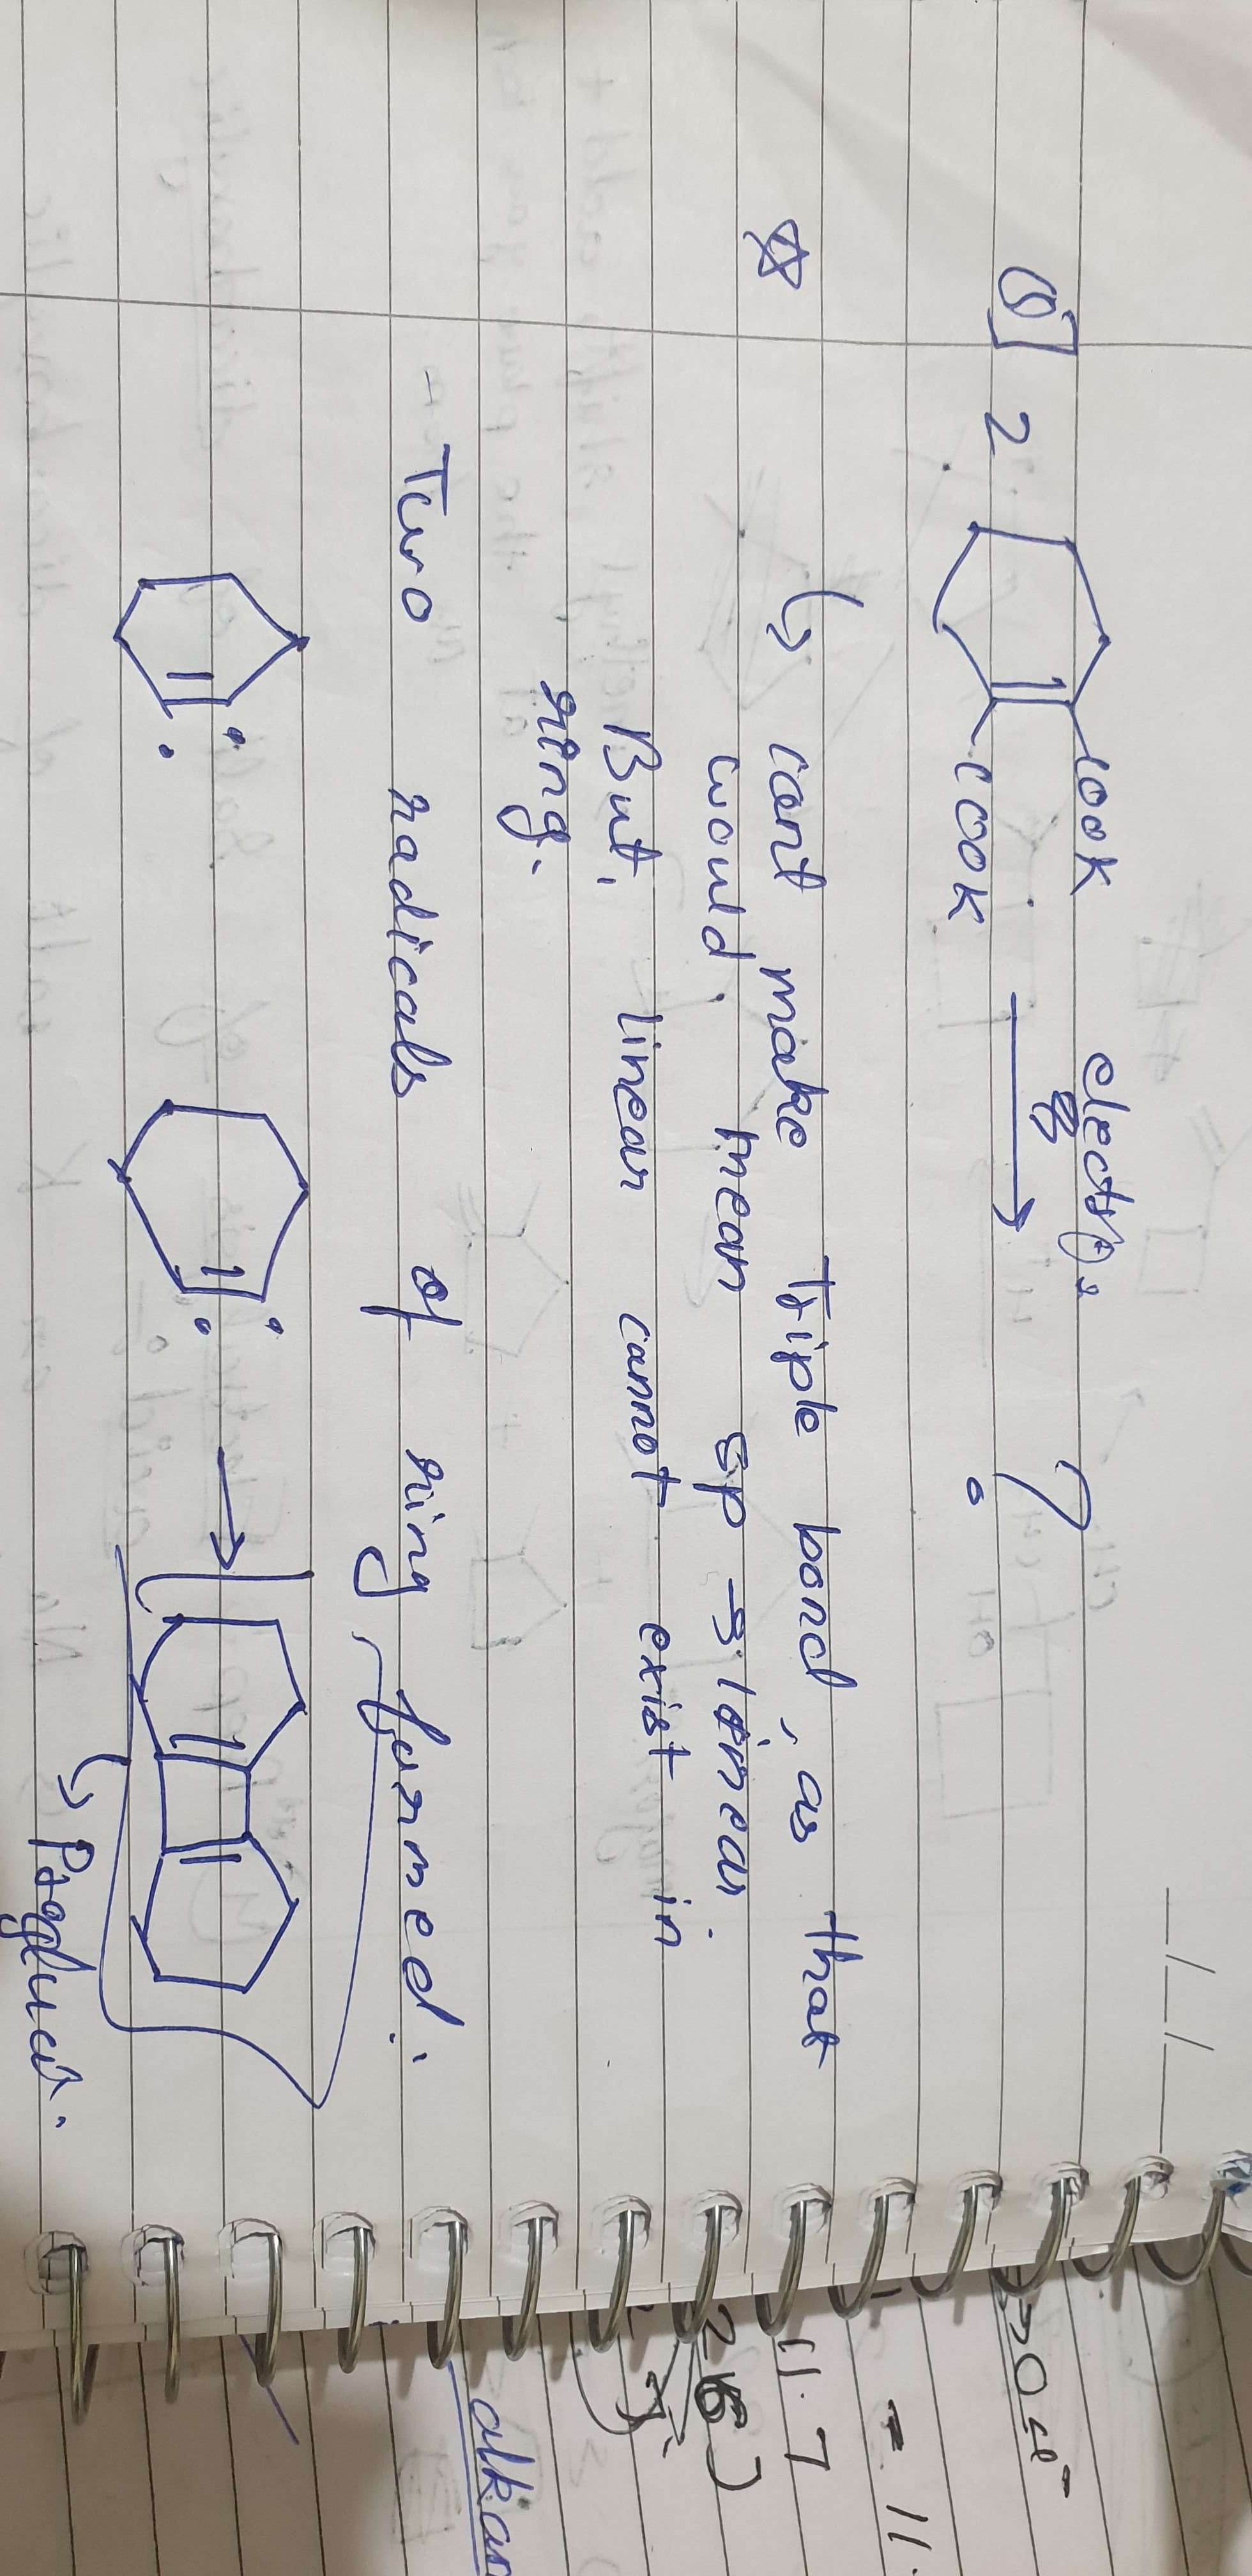 Q] 2 COOK
COOK
electro.
?
↳ cant make Triple bond, as that
would mean sp → linear.
But, linear cannot exist in
ring.
→ Two radicals of ring formed.
→
↳ Product.
>0 Se-
= 11.
11.7
alkan